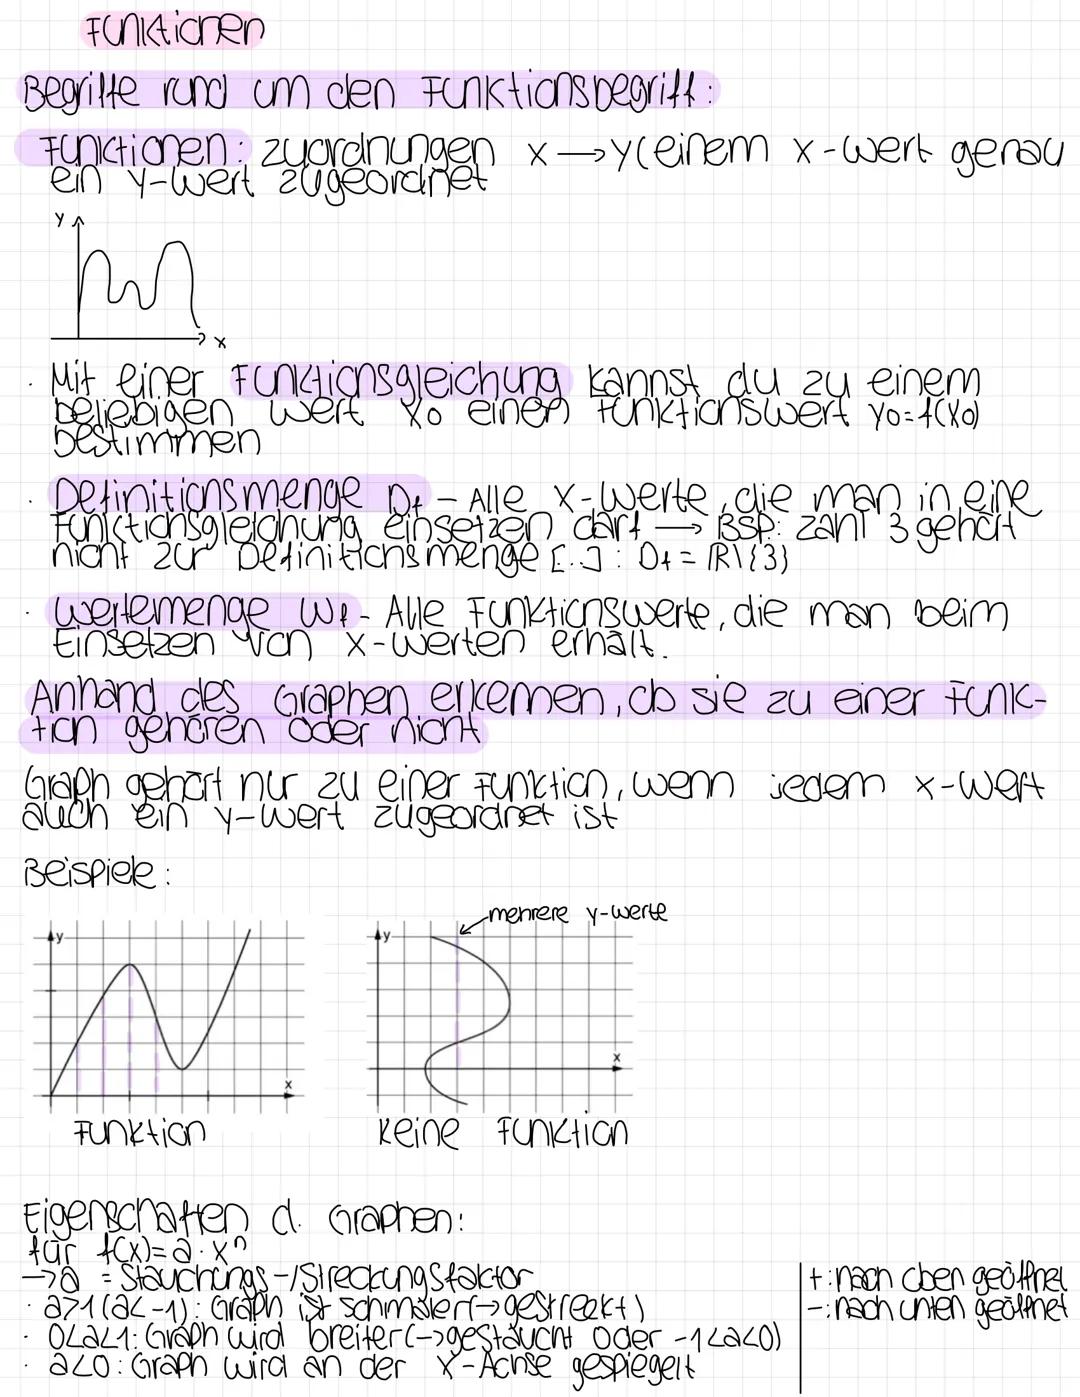 Funktionen
Begriffe rund um den Funktionsbegriff:
Funktionen: zuordnungen x → y (einem x-wert genau
ein y-wert zugeordnet
y
x
· Mit einer Funktionsgleichung kannst du zu einem
beliebigen wert x0 einen Funktionswert y0=f(x0)
bestimmen
· Definitionsmenge Df - Alle x-werte, die man in eine
Funktionsgleichung einsetzen darf → Bsp: zahl 3 gehört
nicht zur Definitionsmenge [..] : Df = ℝ\{3}
· wertemenge Wf - Alle Funktionswerte, die man beim
Einsetzen von x-werten erhält.
Anhand des Graphen erkennen, ob sie zu einer Funk-
tion gehören oder nicht
Graph gehört nur zu einer Funktion, wenn jedem x-Wert
auch ein y-wert zugeordnet ist
Beispiele:
mehrere y-werte
y
x
y
x
Funktion
Keine Funktion
Eigenschaften d. Graphen:
für f(x)=a·xⁿ
→a = Stauchungs-/Streckungsfaktor
· a>1 (a<-1): Graph ist schmaler (→gestreckt)
· 0<a<1: Graph wird breiter (→gestaucht oder -1<a<0)
· a<0: Graph wird an der x-Achse gespiegelt
+: nach oben geöffnet
-: nach unten geöffnet